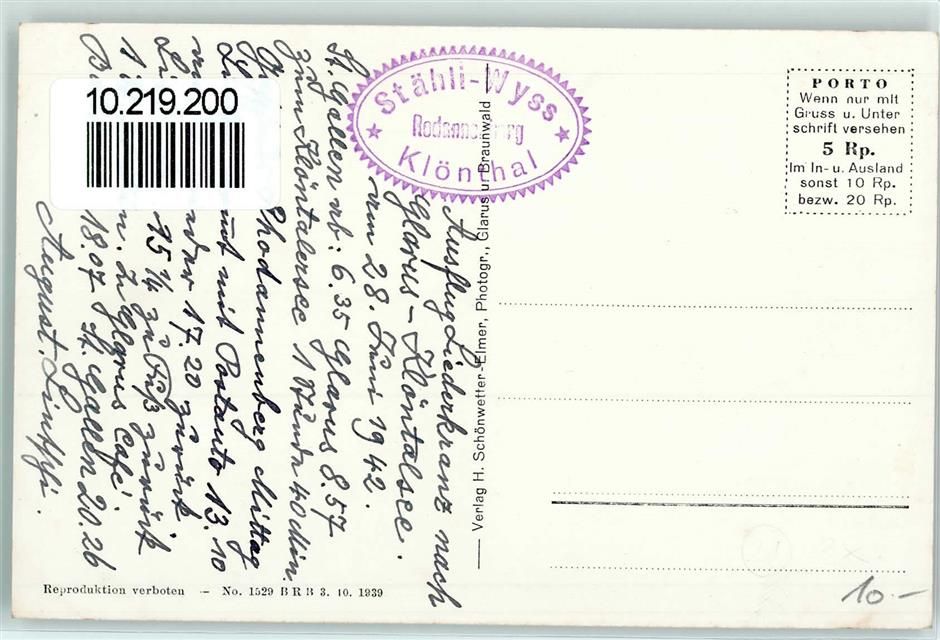 10.219.200
Stähli-Wyss
Rodannenberg
Klönthal
PORTO
Wenn nur mit
Gruss u. Unter
schrift versehen
5 Rp.
Im In- u. Ausland
sonst 10 Rp.
bezw. 20 Rp.
Verlag H. Schönwetter-Elmer, Photogr., Glarus u. Braunwald
Ausflug Liederkranz nach
Glarus - Klöntalsee.
vom 28. Juni 1942.
St. Gallen ab: 6.35 Glarus 8.57
zum Klöntalersee 1 Stunde 40 Min.
Rhodannenberg Mittag
mit Postauto 13.10
17.20 zurück
15 1/4 zu Fuß zurück
Glarus Café
18.07 St. Gallen 20.26
August.
Reproduktion verboten — No. 1529 B R B 3. 10. 1939
10.-